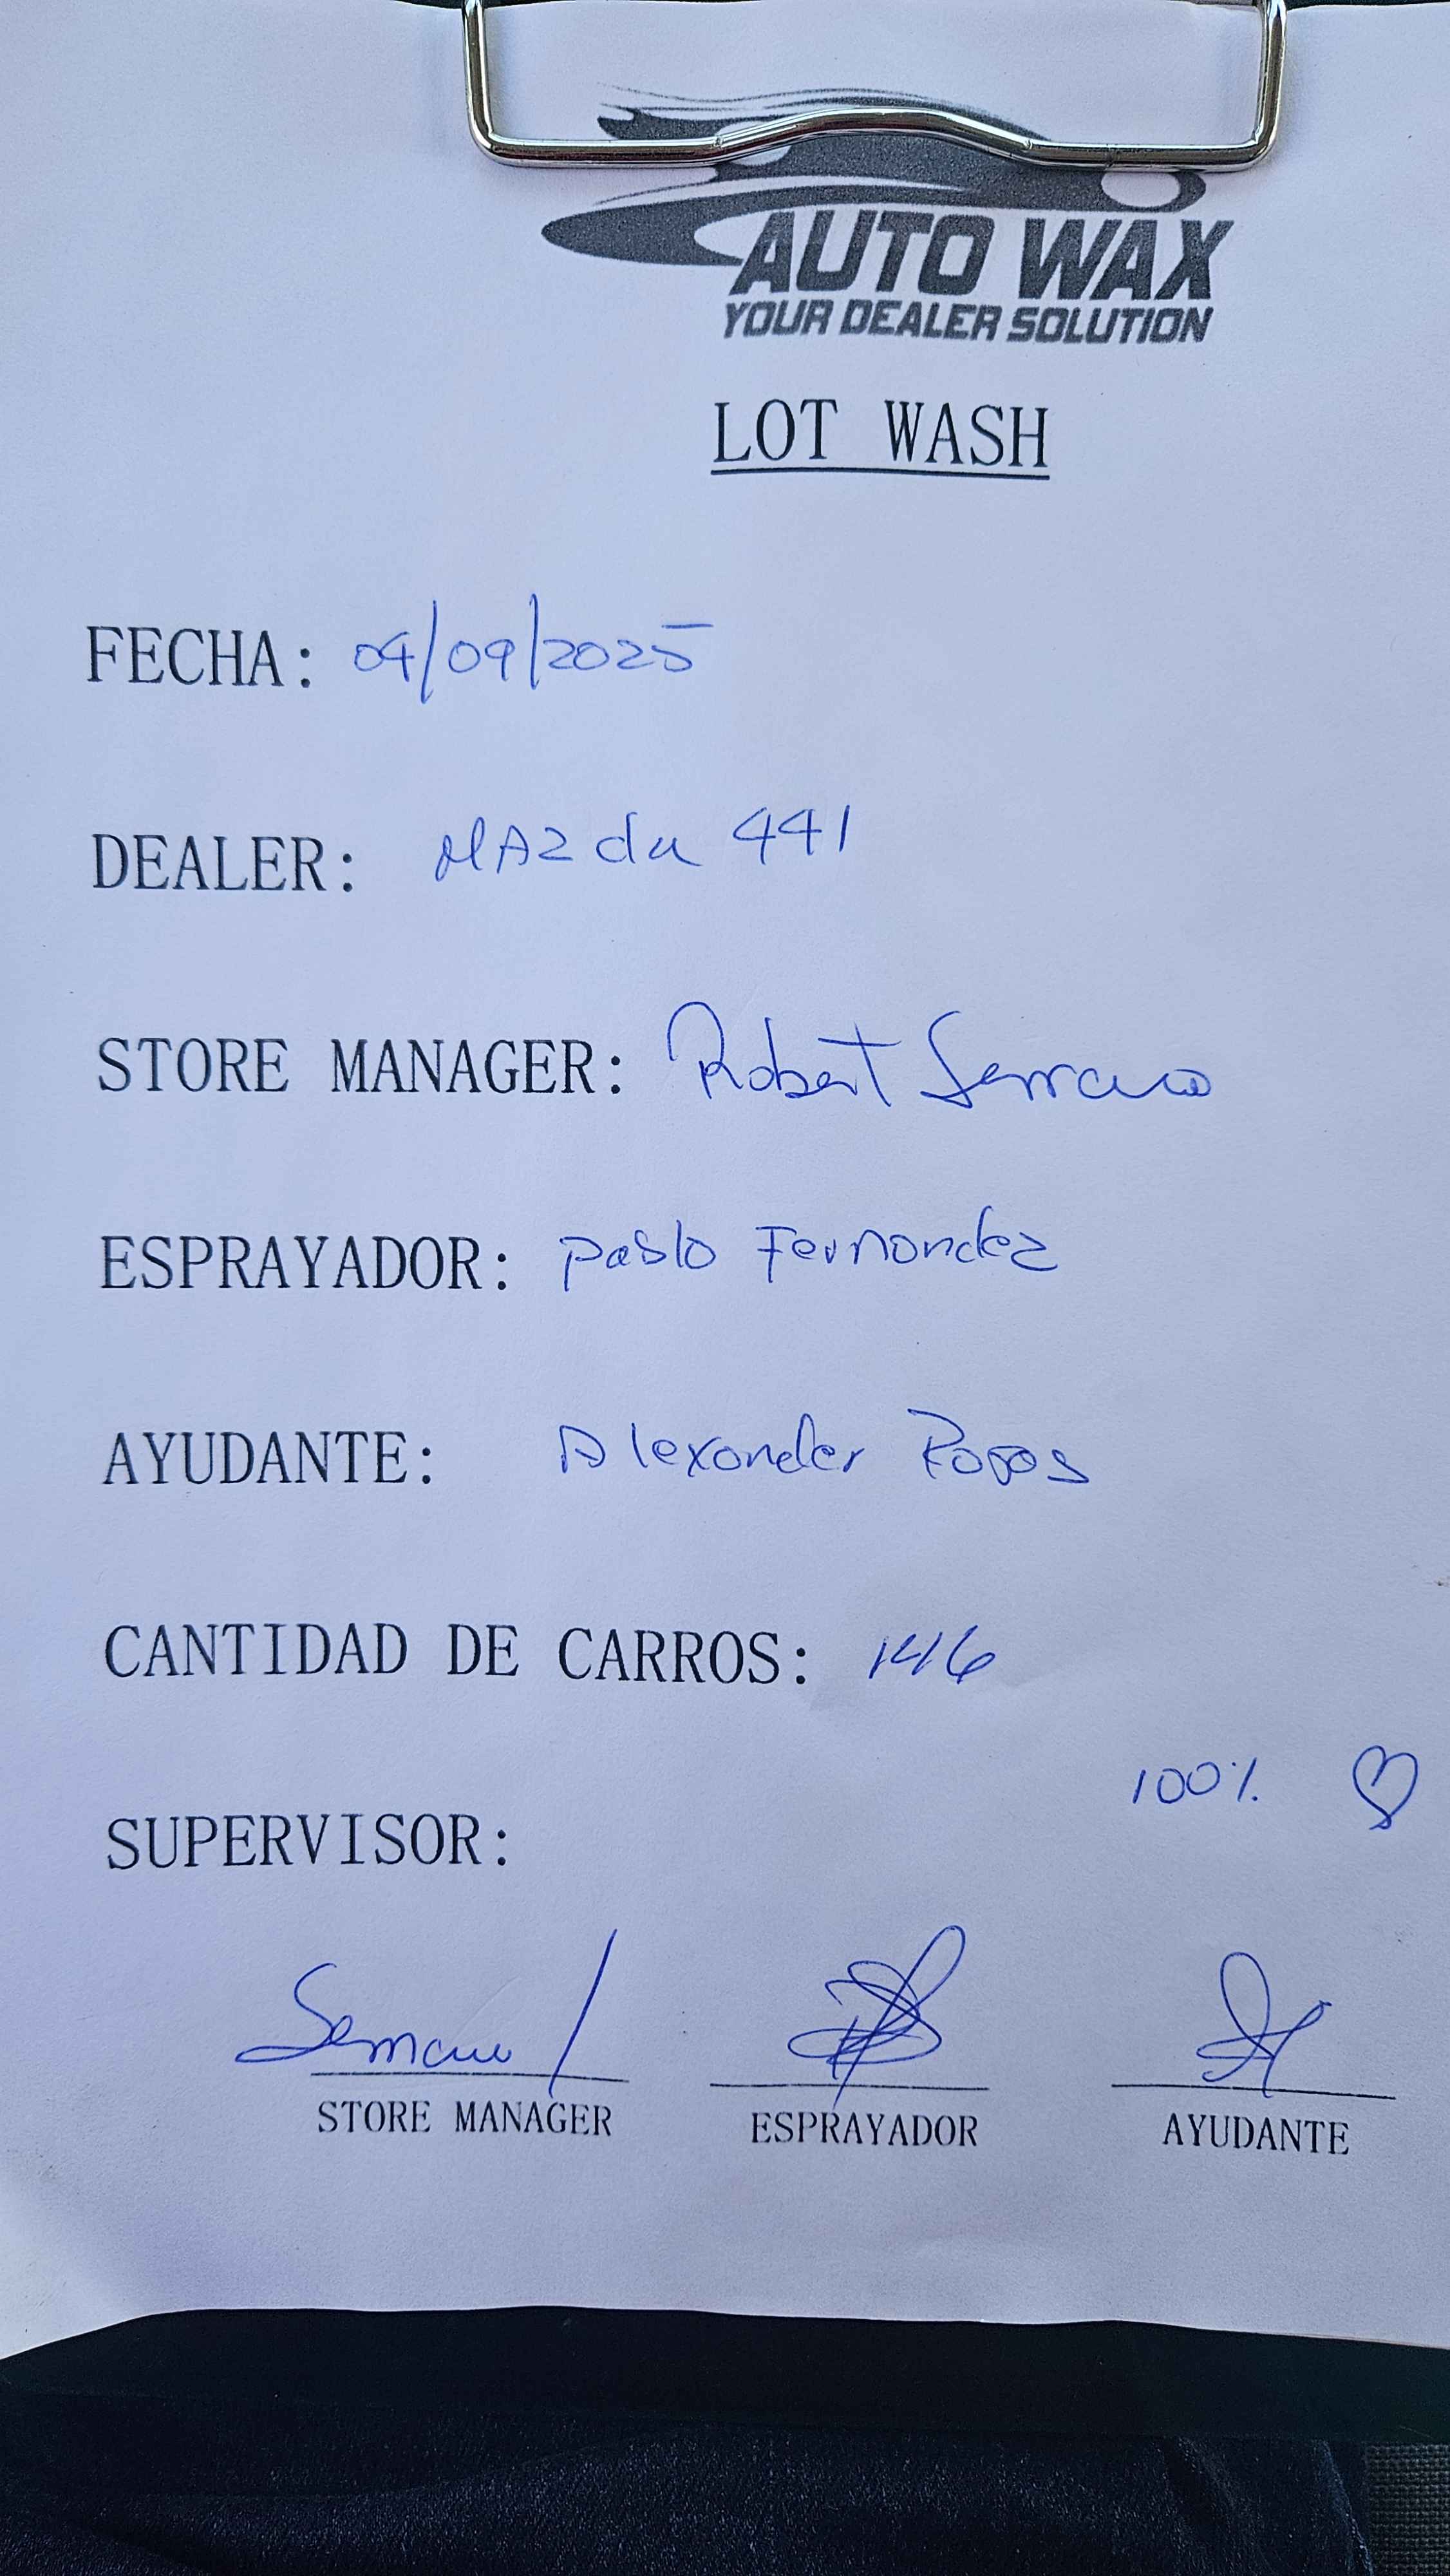 AUTO WAX
YOUR DEALER SOLUTION
LOT WASH
FECHA: 04/09/2025
DEALER: MAZda 441
STORE MANAGER: Robert Serrano
ESPRAYADOR: Pablo Fernandez
AYUDANTE: Alexander
CANTIDAD DE CARROS: 146
100% ♡
SUPERVISOR:
Serrano
STORE MANAGER ESPRAYADOR AYUDANTE